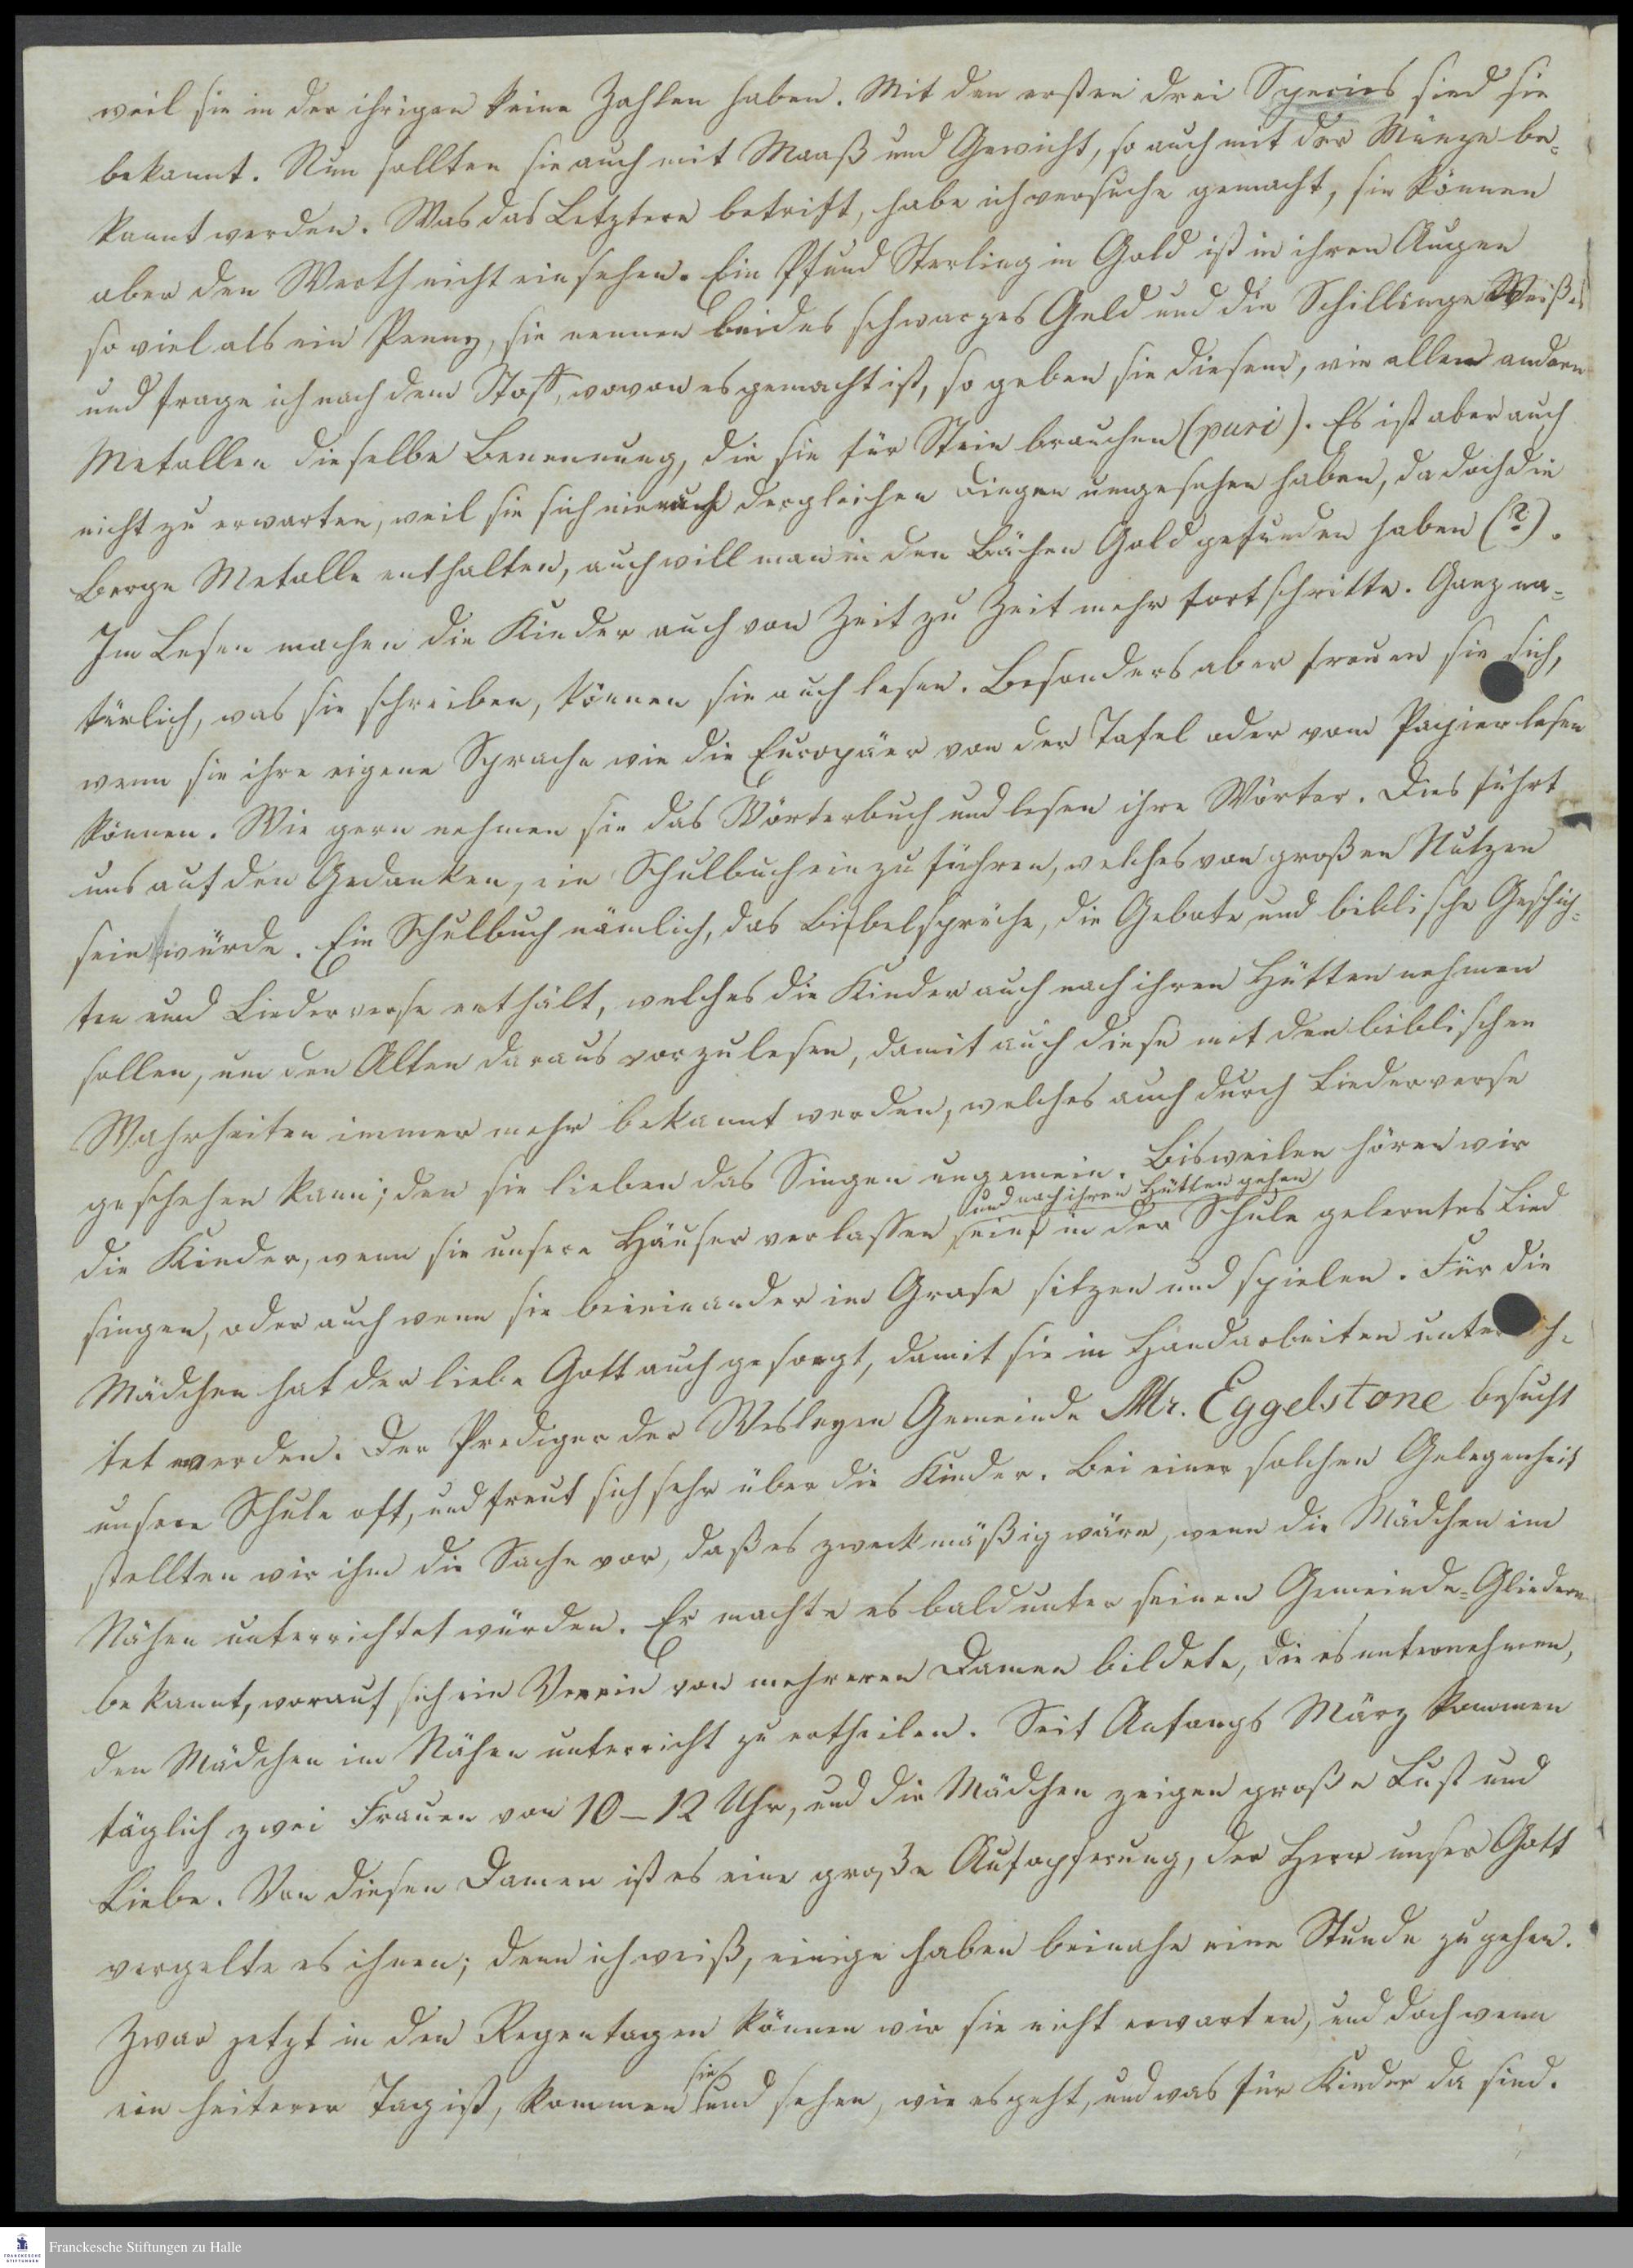 weil sie in der ihrigen keine Zahlen haben. Mit den ersten drei Species sind sie
bekannt. Nun sollten sie auch mit Maaß und Gewicht, so auch mit der Münze be-
kannt werden. Was das Letztere betrift, habe ich versuche gemacht, sie können
aber den Werth nicht einsehen. Ein Pfund Sterling in Gold ist in ihren Augen
so viel als ein Penny, sie nennen beides schwarzes Geld und die Schillinge Weißes
und frage ich nach dem Stoff, wovon es gemacht ist, so geben sie diesem, wie allen andern
Metallen dieselbe Benennung, die sie für Stein brauchen (puri). Es ist aber auch
nicht zu erwarten, weil sie sich nie nach dergleichen Dingen umgesehen haben, da doch die
Berge Metalle enthalten, auch will man in den Bächen Gold gefunden haben (?).
Im Lesen machen die Kinder auch von Zeit zu Zeit mehr fortschritte. Ganz na-
türlich, was sie schreiben, können sie auch lesen. Besonders aber freuen sie sich,
wenn sie ihre eigene Sprache wie die Europäer von der Tafel oder vom Papier lesen
können. Wie gern nehmen sie das Wörterbuch und lesen ihre Wörter. Dies führt
uns auf den Gedanken, ein Schulbuch einzuführen, welches von großen Nutzen
sein würde. Ein Schulbuch nämlich, das Bibelsprüche, die Gebote und biblische Geschich-
ten und Liederverse enthält, welches die Kinder auch nach ihren Hütten nehmen
sollen, um den Alten daraus vorzulesen, damit auch diese mit den biblischen
Wahrheiten immer mehr bekannt werden, welches auch durch Liederverse
geschehen kann; den sie lieben das Singen ungemein. Bisweilen hören wir
und nach ihren Hütten gehen
die Kinder, wenn sie unsere Häuser verlassen, ein in der Schule gelerntes Lied
singen, oder auch wenn sie beieinander im Grase sitzen und spielen. Für die
Mädchen hat der liebe Gott auch gesorgt, damit sie in Handarbeiten unterrich-
tet werden. Der Prediger der Wesleyen Gemeinde Mr. Eggelstone besucht
unsere Schule oft, und freut sich sehr über die Kinder. Bei einer solchen Gelegenheit
stellten wir ihm die Sache vor, daß es zweckmäßig wäre, wenn die Mädchen im
Nähen unterrichtet würden. Er machte es bald unter seinen Gemeinde-Gliedern
bekannt, worauf sich ein Verein von mehreren Damen bildete, die es unternehmen,
den Mädchen im Nähen unterricht zu ertheilen. Seit Anfangs März kommen
täglich zwei Frauen von 10–12 Uhr, und die Mädchen zeigen große Lust und
Liebe. Von diesen Damen ist es eine große Aufopferung, der Herr unser Gott
vergelte es ihnen; denn ich weiß, einige haben beinahe eine Stunde zu gehen.
Zwar jetzt in den Regentagen können wir sie nicht erwarten, und doch wenn
sie
ein heiterer Tag ist, kommen und sehen, wie es geht, und was für Kinder da sind.
Franckesche Stiftungen zu Halle
FRANCKESCHE
STIFTUNGEN